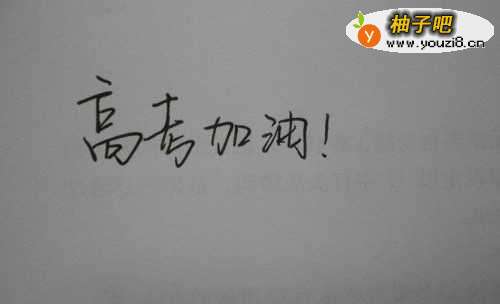 柚子吧
www.youzi8.cn
高考加油!